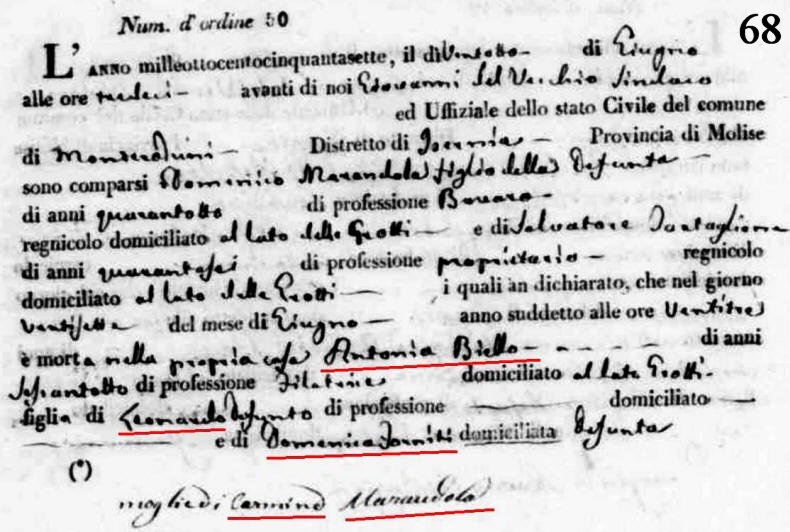 68
Num. d'ordine 50
L'ANNO milleottocentocinquantasette, il dì Ventotto di Giugno
alle ore tredeci avanti di noi Giovanni del Vecchio Sindaco
ed Uffiziale dello stato Civile del comune
di Monteroduni Distretto di Isernia Provincia di Molise
sono comparsi Domenico Marandola figlio della Defunta
di anni quarantotto di professione Bovaro
regnicolo domiciliato al lato delle Grotti e di Salvatore
di anni quarantasei di professione proprietario regnicolo
domiciliato al lato delle Grotti i quali an dichiarato, che nel giorno
Ventisette del mese di Giugno anno suddetto alle ore Ventitre
è morta nella propria casa Antonia Biello di anni
sessantotto di professione Filatrice domiciliato al lato Grotti
figlia di Leonardo defunto di professione domiciliato
e di Domenica domiciliata Defunta
(*)
moglie di Carmine Marandola